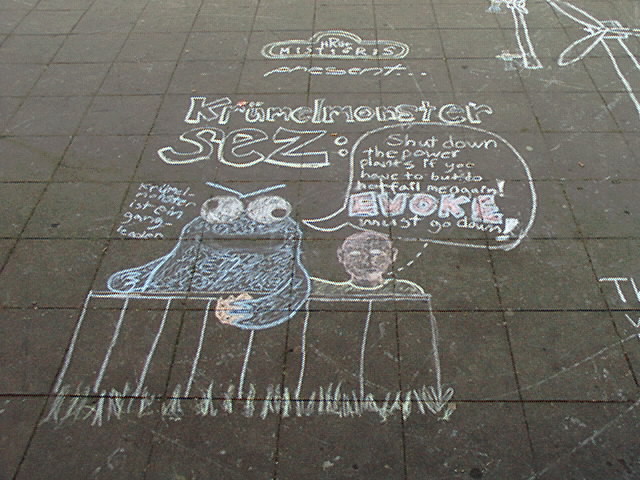 MISTIGRIS
present...
Krümelmonster
sez:
Shut down
the power
plants if you
have to but do
not fail me again!
EVOKE
must go down!
Krümel-
monster
ist ein
gang-
leader
TH